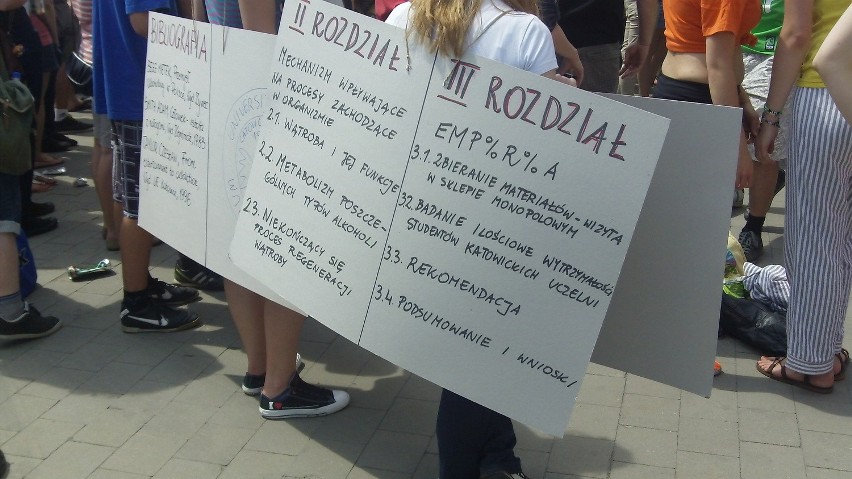 BIBLIOGRAFIA
II ROZDZIAŁ
MECHANIZM WPŁYWAJĄCE
NA PROCESY ZACHODZĄCE
W ORGANIZMIE
2.1. WĄTROBA I JEJ FUNKCJE
2.2. METABOLIZM POSZCZE-
GÓLNYCH TYPÓW ALKOHOLI
2.3. NIEKOŃCZĄCY SIĘ
PROCES REGENERACJI
WĄTROBY
III ROZDZIAŁ
EMP%R%A
3.1. ZBIERANIE MATERIAŁÓW - WIZYTA
W SKLEPIE MONOPOLOWYM
3.2. BADANIE ILOŚCIOWE WYTRZYMAŁOŚCI
STUDENTÓW KATOWICKICH UCZELNI
3.3. REKOMENDACJA
3.4. PODSUMOWANIE I WNIOSKI